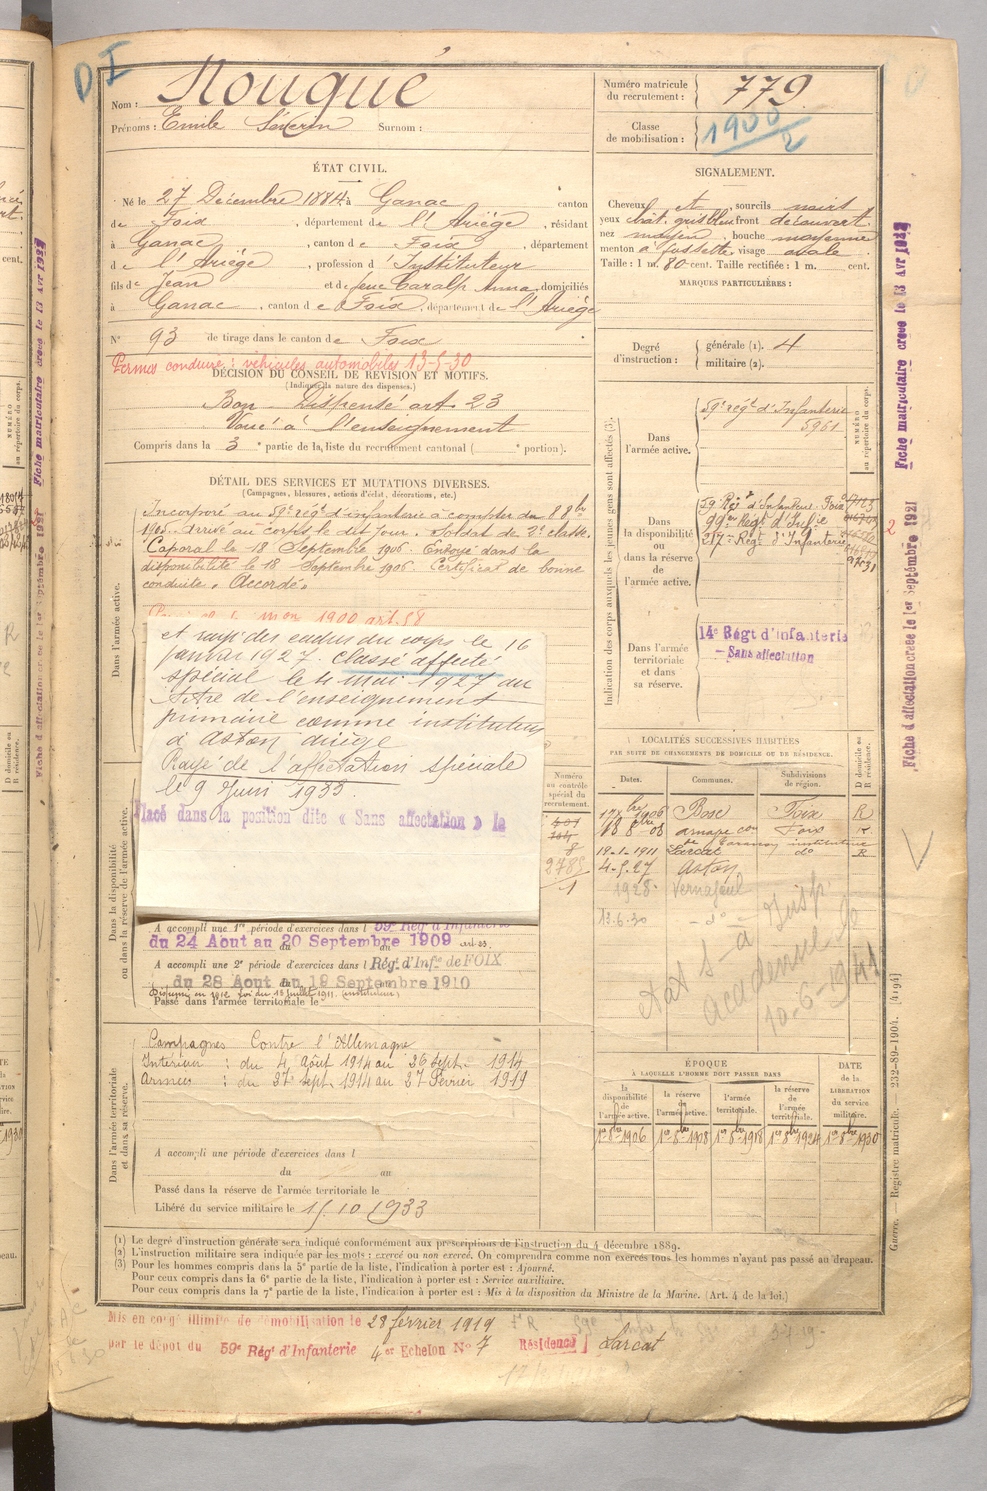 D I
Nom : Rouqué
Prénoms : Emile Séverin Surnom :
Numéro matricule du recrutement : 779
Classe de mobilisation : 1900/2
ÉTAT CIVIL.
Né le 27 Décembre 1884 à Ganac canton
de Foix, département de l'Ariège, résidant
à Ganac, canton de Foix, département
de l'Ariège, profession d'Instituteur
fils de Jean et de feue Caralp Anna, domiciliés
à Ganac, canton de Foix, département de l'Ariège
N° 93 de tirage dans le canton de Foix
Permis conduire : véhicules automobiles 13-5-30
DÉCISION DU CONSEIL DE RÉVISION ET MOTIFS.
(Indiquer la nature des dispenses.)
Bon Dispensé art 23
Voué à l'enseignement
Compris dans la 3e partie de la liste du recrutement cantonal ( portion).
SIGNALEMENT.
Cheveux et, sourcils noirs
yeux chât. gris bleu front découvert
nez moyen, bouche moyenne
menton à fossette, visage ovale
Taille : 1 m. 80 cent. Taille rectifiée : 1 m. cent.
MARQUES PARTICULIÈRES :
Degré d'instruction : générale (1). 4
militaire (2).
DÉTAIL DES SERVICES ET MUTATIONS DIVERSES.
(Campagnes, blessures, actions d'éclat, décorations, etc.)
Dans l'armée active.
Incorporé au 59e régt d'infanterie à compter du 8 8bre
1905. Arrivé au corps le dit jour. Soldat de 2e classe.
Caporal le 18 Septembre 1906. Envoyé dans la
disponibilité le 18 Septembre 1906. Certificat de bonne
conduite « Accordé »
1900 art. 58
et rayé des cadres du corps le 16
janvier 1927. Classé affecté
spécial le 4 mai 1927 au
titre de l'enseignement
primaire comme instituteur
à Aston Ariège
Rayé de l'affectation spéciale
le 9 Juin 1933.
Placé dans la position dite « Sans affectation » le
Dans la disponibilité ou dans la réserve de l'armée active.
A accompli une 1re période d'exercices dans l 59e Rég d'Infanterie
du 24 Aout au 20 Septembre 1909
A accompli une 2e période d'exercices dans l Rég. d'Infie de FOIX
du 28 Aout au 19 Septembre 1910
Passé dans l'armée territoriale le
Numéro au contrôle spécial du recrutement.
8
2785
1
Indication des corps auxquels les jeunes gens sont affectés (3).
NUMÉRO au répertoire du corps.
Dans l'armée active.
59e régt d'Infanterie
5961
Dans la disponibilité ou dans la réserve de l'armée active.
59 Régt d'Infanterie Foix
99me Régt d'Infie
217e Régt d'Infanterie
Dans l'armée territoriale et dans sa réserve.
14e Régt d'Infanterie
- Sans affectation
LOCALITÉS SUCCESSIVES HABITÉES
PAR SUITE DE CHANGEMENTS DE DOMICILE OU DE RÉSIDENCE.
Dates. Communes. Subdivisions de région. D domicile ou R résidence.
1906 Bosc Foix R
08 Foix R
19-1-1911 Larcat do R
4-5-27 Aston
1928 Vernajoul
13.6.30 - do -
10-6-1941
ÉPOQUE
À LAQUELLE L'HOMME DOIT PASSER DANS
la disponibilité de l'armée active. la réserve de l'armée active. l'armée territoriale. la réserve de l'armée territoriale. DATE de la LIBÉRATION du service militaire.
1er 8bre 1906 1er 8bre 1908 1er 8bre 1918 1er 8bre 1924 1er 8bre 1930
Dans l'armée territoriale et dans sa réserve.
Campagnes Contre l'Allemagne
Intérieur : du 4 Août 1914 au 26 Sept. 1914
Armées : du 27 Sept. 1914 au 27 Février 1919
A accompli une période d'exercices dans l
du au
Passé dans la réserve de l'armée territoriale le
Libéré du service militaire le 15.10.1933
(1) Le degré d'instruction générale sera indiqué conformément aux prescriptions de l'instruction du 4 décembre 1889.
(2) L'instruction militaire sera indiquée par les mots : exercé ou non exercé. On comprendra comme non exercés tous les hommes n'ayant pas passé au drapeau.
(3) Pour les hommes compris dans la 5e partie de la liste, l'indication à porter est : Ajourné.
Pour ceux compris dans la 6e partie de la liste, l'indication à porter est : Service auxiliaire.
Pour ceux compris dans la 7e partie de la liste, l'indication à porter est : Mis à la disposition du Ministre de la Marine. (Art. 4 de la loi.)
Mis en congé illimité de démobilisation le 28 février 1919
par le dépôt du 59e Rég d'Infanterie 4e Echelon N° 7 Résidence Larcat
Guerre. — Registre matricule. 232-89-1904. [4194]
Fiche d'affectation créée le 1er Septembre 1921
Fiche matriculaire créée le 13 Avr